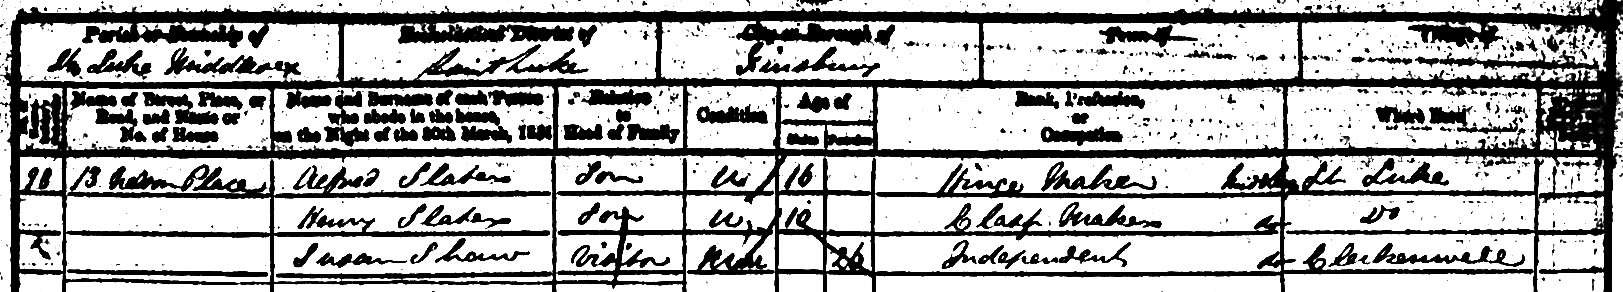 Parish or Township of Ecclesiastical District of City or Borough of Town of Village of
St Luke Middlesex Saint Luke Finsbury
Name of Street, Place, or Road, and Name or No. of House
Name and Surname of each Person who abode in the house, on the Night of the 30th March, 1851
Relation to Head of Family
Condition
Age of
Males Females
Rank, Profession, or Occupation
Where Born
98 13 Nelson Place Alfred Slater Son U 16 Hinge Maker Middlx St Luke
Henry Slater Son U Clasp Maker do Do
Susan Shaw Visitor Mar 26 Independent do Clerkenwell